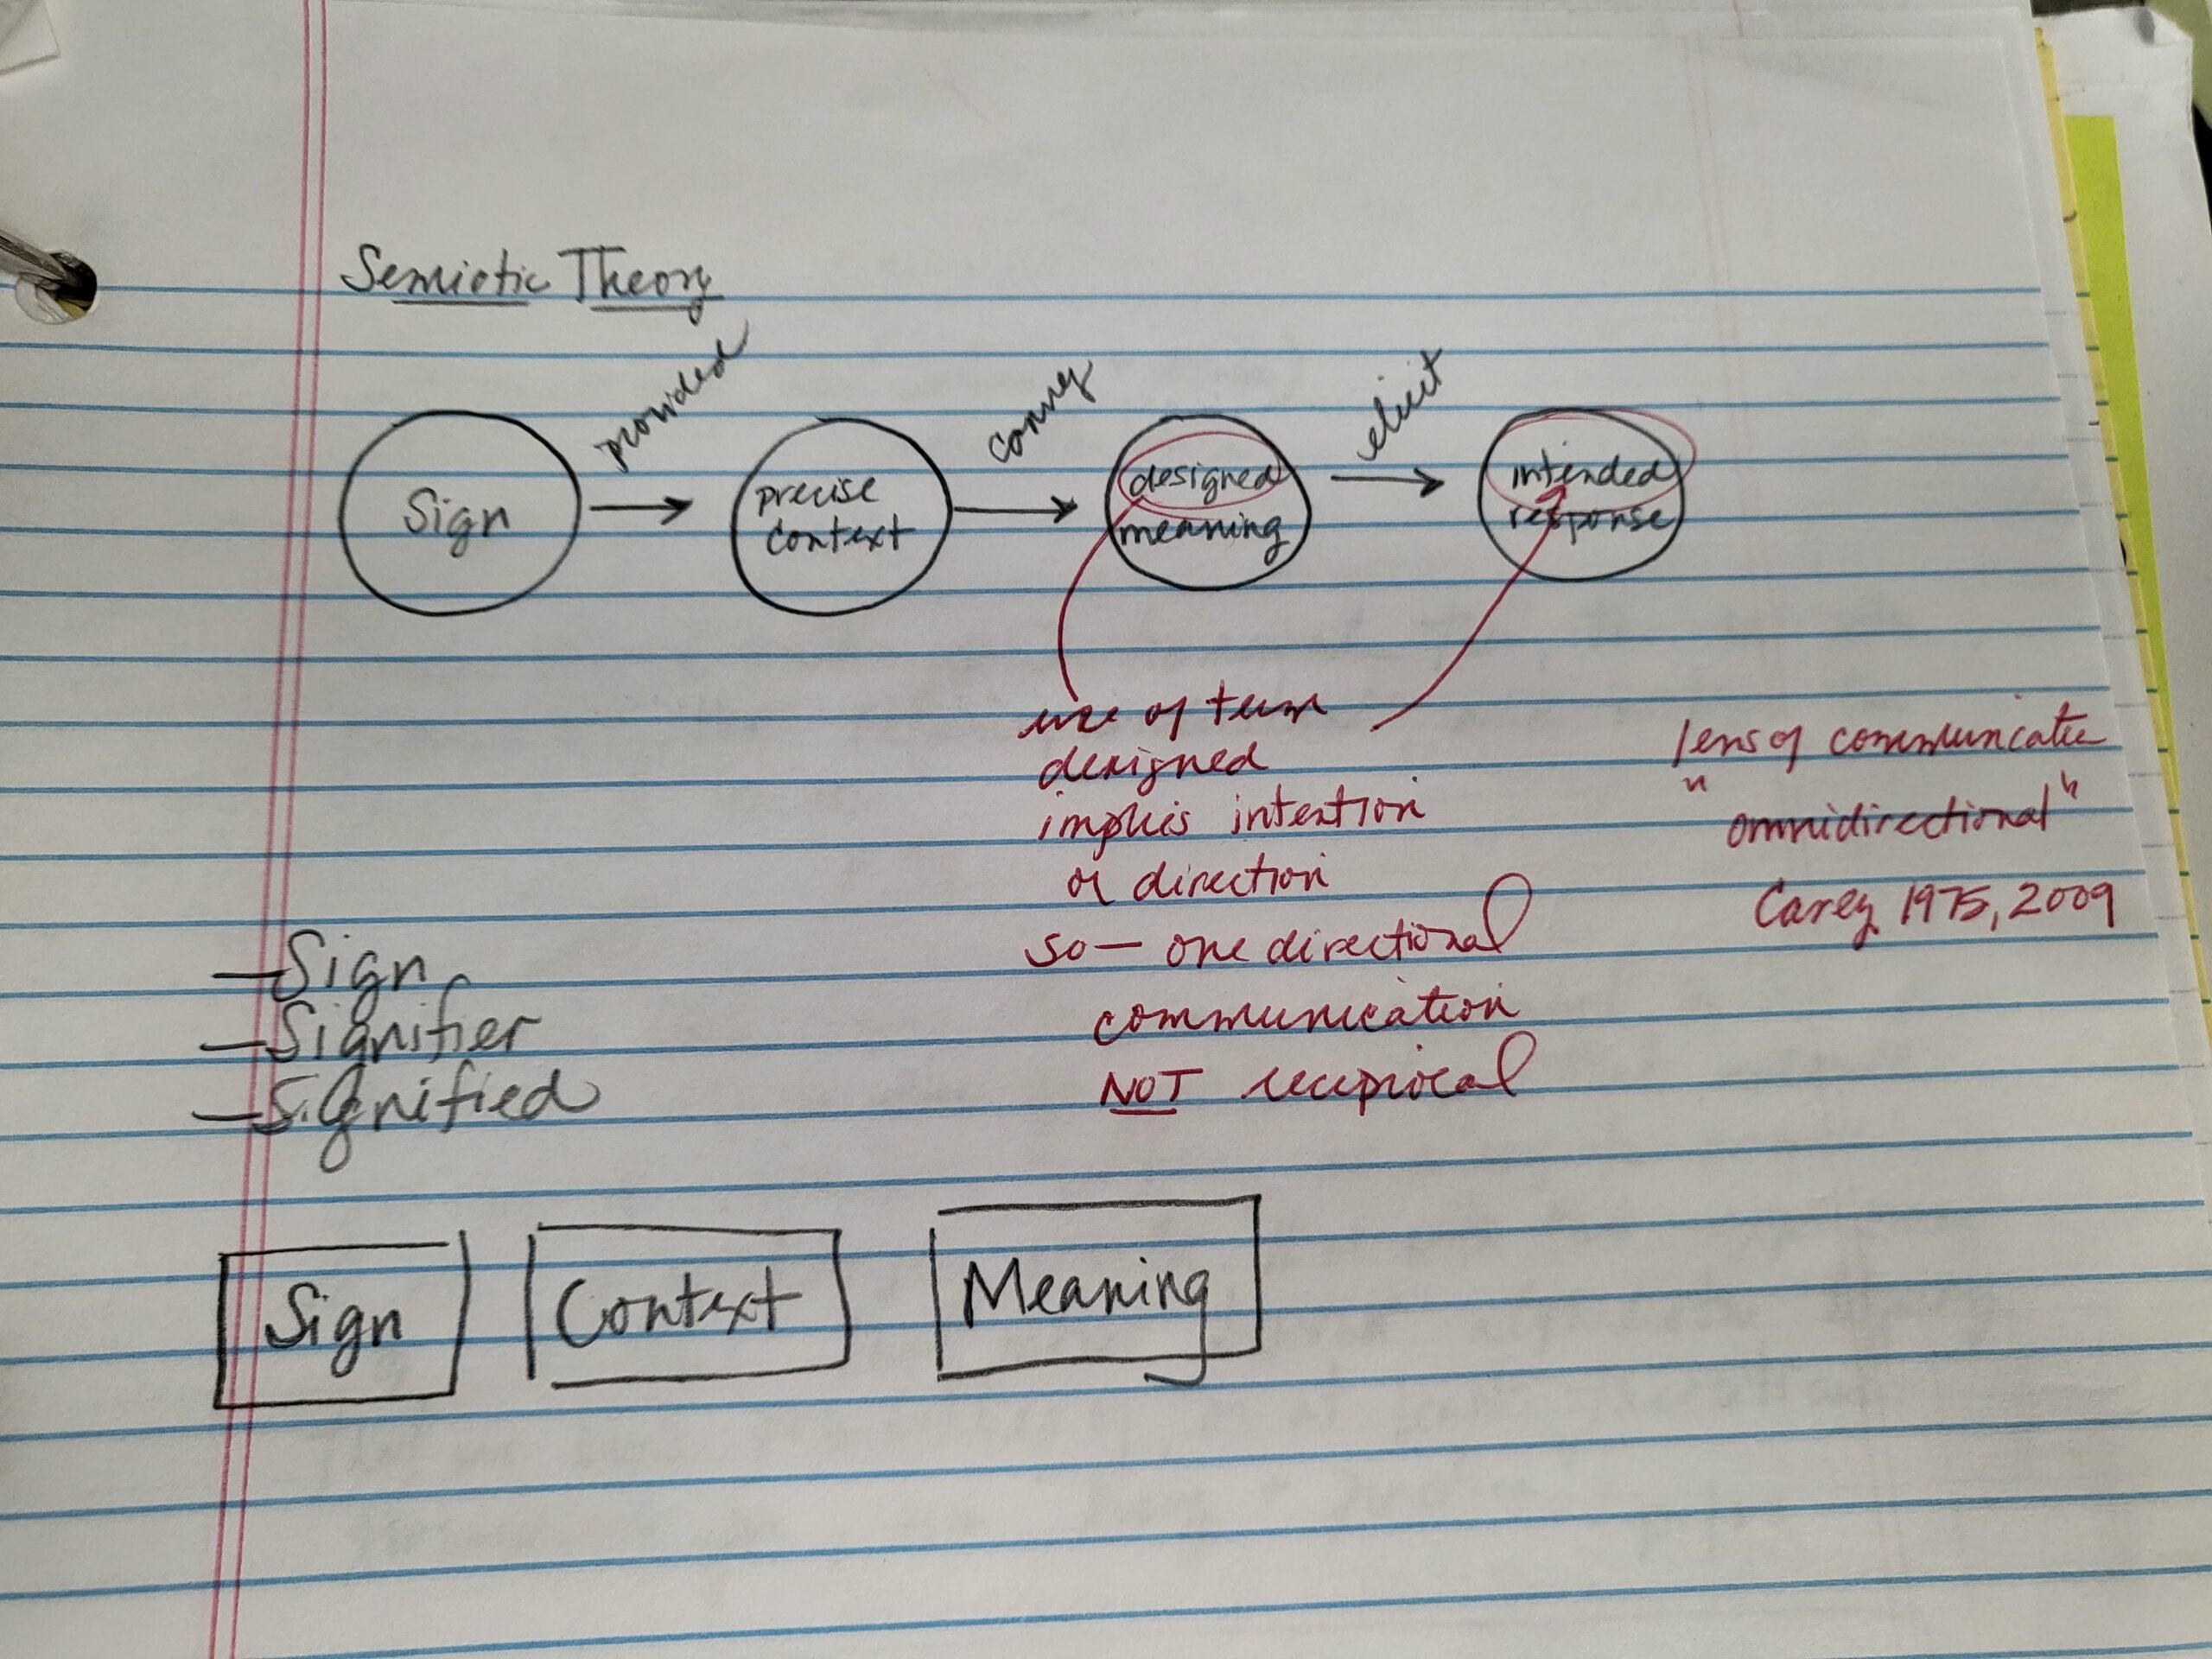 Semiotic Theory
provided
convey
elicit
Sign
precise
context
designed
meaning
intended
response
use of term
designed
implies intention
or direction
so — one directional
communication
NOT reciprocal
lens of communicatn
"omnidirectional"
Carey 1975, 2009
— Sign
— Signifier
— Signified
Sign
Context
Meaning